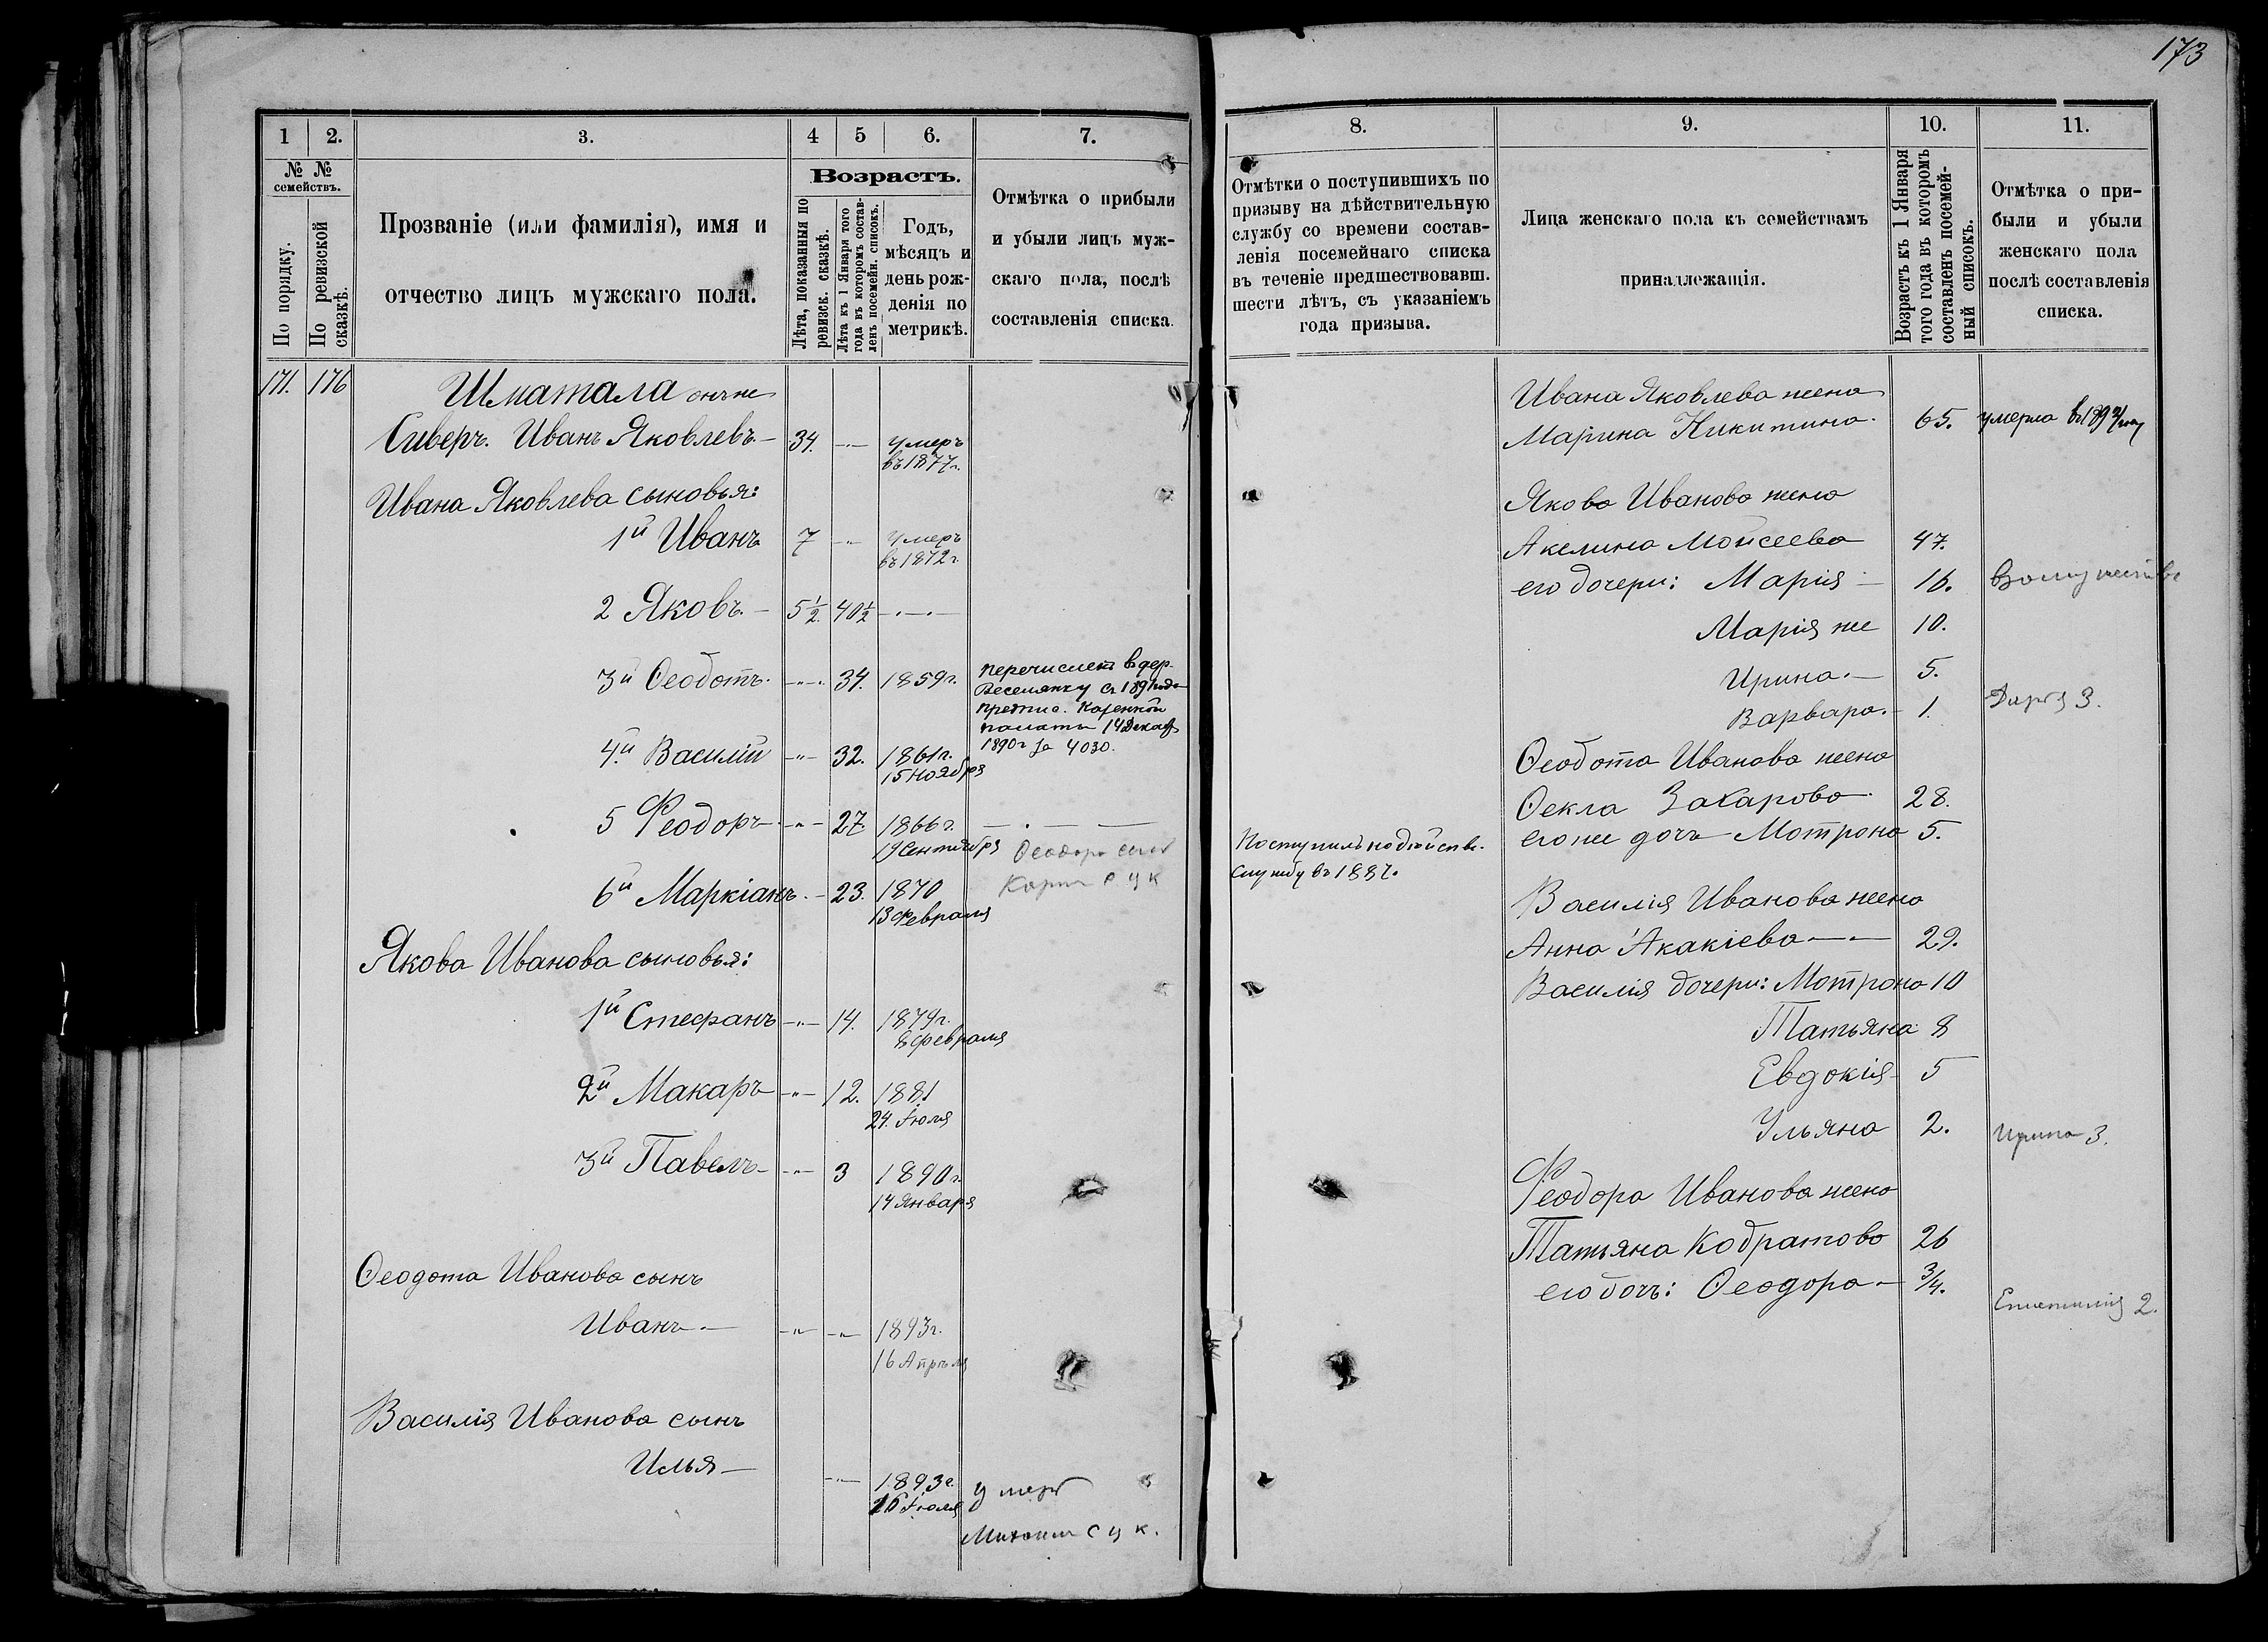 173
1
2.
3.
4
5
6.
7.
№ №
семействъ.
По порядку.
По ревизской
сказкѣ.
Прозваніе (или фамилія), имя и
отчество лицъ мужскаго пола.
Возрастъ.
Лѣта, показанныя по
ревизск. сказкѣ.
Лѣта къ 1 Января того
года въ которомъ состав-
ленъ посемейн. списокъ.
Годъ,
мѣсяцъ и
день рож-
денія по
метрикѣ.
Отмѣтка о прибыли
и убыли лицъ муж-
скаго пола, послѣ
составленія списка.
171. 176 Шматала онъ же
Сиверъ. Иванъ Яковлевъ 34. умеръ
въ 1877г.
Ивана Яковлева сыновья:
1й Иванъ 7 умеръ
въ 1872г.
2 Яковъ 5½ 40½
3й Ѳеодотъ 34. 1859г. перечисленъ в дер.
Веселянку съ 1891 года
предпис. Казенной
палаты 14 Декаб
1890г за 4030.
4й Василій 32. 1861г.
15 Ноября
5 Феодоръ 27. 1866г.
19 Сентября Ѳеодора сын
Карпъ с ц к
6й Маркіанъ 23. 1870
13 Февраля
Якова Иванова сыновья:
1й Стефанъ 14. 1879г.
8 Февраля
2й Макаръ 12. 1881
24 Іюля
3й Павелъ 3 1890г.
14 Января
Ѳеодота Иванова сынъ
Иванъ 1893г.
16 Апрѣля
Василія Иванова сынъ
Илья 1893г. умеръ
16 Іюля
Михаилъ с ц к.
8.
9.
10.
11.
Отмѣтки о поступившихъ по
призыву на дѣйствительную
службу со времени состав-
ленія посемейнаго списка
въ теченіе предшествовавш.
шести лѣтъ, съ указаніемъ
года призыва.
Лица женскаго пола къ семействамъ
принадлежащія.
Возрастъ къ 1 Января
того года въ которомъ
составленъ посемей-
ный списокъ.
Отмѣтка о при-
были и убыли
женскаго пола
послѣ составленія
списка.
Ивана Яковлева жена
Марина Никитина 65. умерла въ 189
Якова Иванова жена
Акелина Мойсеева 47.
его дочери: Марія 16. Взамужествѣ
Марія же 10.
Ирина 5.
Варвара 1. Дарья 3.
Ѳеодота Иванова жена
Ѳекла Захарова 28.
его же дочь Мотрона 5.
Поступилъ на дѣйств.
службу въ 1887.
Василія Иванова жена
Анна Акакіева 29.
Василія дочери: Мотрона 10
Татьяна 8
Евдокія 5
Ульяна 2. Ирина 3.
Феодора Иванова жена
Татьяна Кодратова 26
его дочь: Ѳеодора ¾. 2.